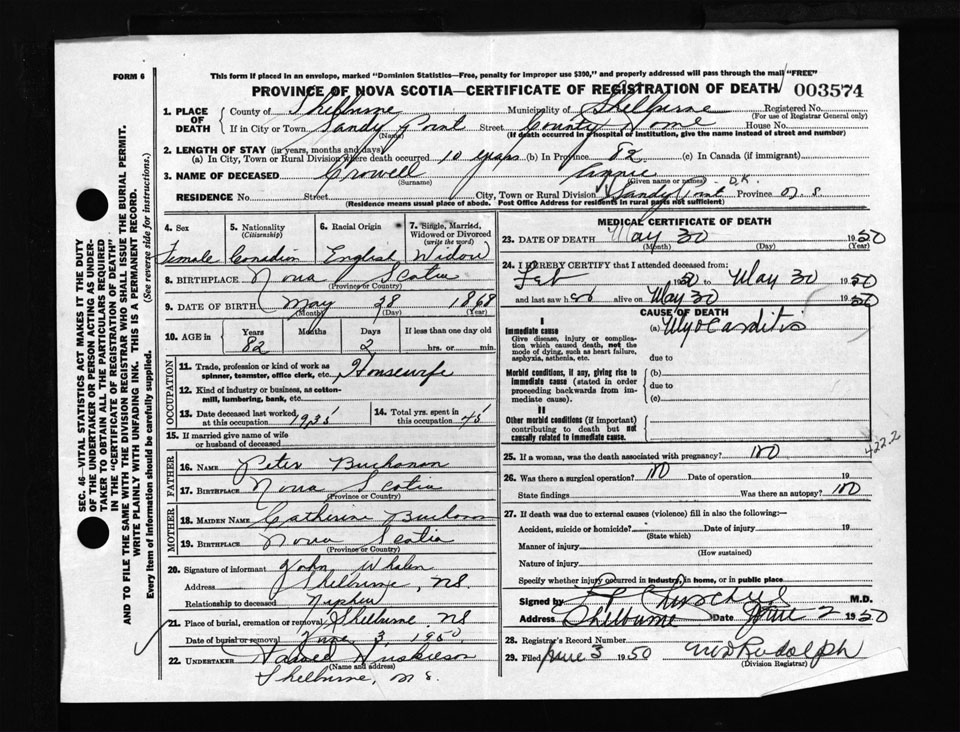 FORM 6
This form if placed in an envelope, marked "Dominion Statistics—Free, penalty for improper use $300," and properly addressed will pass through the mail "FREE"
PROVINCE OF NOVA SCOTIA—CERTIFICATE OF REGISTRATION OF DEATH 003574
1. PLACE OF DEATH
County of Shelburne Municipality of Shelburne Registered No.
(For use of Registrar General only)
If in City or Town Sandy Point Street County Home House No.
(Name) (If death occurred in a hospital or institution, give the name instead of street and number)
2. LENGTH OF STAY (in years, months and days)
(a) In City, Town or Rural Division where death occurred 10 years (b) In Province 82 (c) In Canada (if immigrant)
3. NAME OF DECEASED Crowell Annie
(Surname) (Given name or names) D.K.
RESIDENCE No. Street City, Town or Rural Division Sandy Point Province N.S
(Residence means usual place of abode. Post Office Address for residents in rural parts not sufficient)
4. Sex Female
5. Nationality (Citizenship) Canadian
6. Racial Origin English
7. Single, Married, Widowed or Divorced (write the word) Widow
8. BIRTHPLACE Nova Scotia
(Province or Country)
9. DATE OF BIRTH May 28 1868
(Month) (Day) (Year)
10. AGE in Years Months Days If less than one day old
82 2 hrs. or min.
OCCUPATION
11. Trade, profession or kind of work as spinner, teamster, office clerk, etc. Housewife
12. Kind of industry or business, as cotton-mill, lumbering, bank, etc.
13. Date deceased last worked at this occupation 1935
14. Total yrs. spent in this occupation 45
15. If married give name of wife or husband of deceased
FATHER
16. NAME Peter Buchanan
17. BIRTHPLACE Nova Scotia
(Province or Country)
MOTHER
18. MAIDEN NAME Catherine
19. BIRTHPLACE Nova Scotia
(Province or Country)
20. Signature of informant John Whalen
Address Shelburne, NS.
Relationship to deceased Nephew
21. Place of burial, cremation or removal Shelburne, NS
Date of burial or removal June 3, 1950
22. UNDERTAKER
(Name and address)
Shelburne, N S.
MEDICAL CERTIFICATE OF DEATH
23. DATE OF DEATH May 30 1950
(Month) (Day) (Year)
24. I HEREBY CERTIFY that I attended deceased from:
Feb 1950 to May 30 1950
and last saw her alive on May 30 1950
CAUSE OF DEATH
I
Immediate cause
Give disease, injury or complication which caused death, not the mode of dying, such as heart failure, asphyxia, asthenia, etc.
(a) Myocarditis
due to
Morbid conditions, if any, giving rise to immediate cause (stated in order proceeding backwards from immediate cause).
(b)
due to
(c)
II
Other morbid conditions (if important) contributing to death but not causally related to immediate cause.
4222
25. If a woman, was the death associated with pregnancy? no
26. Was there a surgical operation? no Date of operation 19
State findings Was there an autopsy? no
27. If death was due to external causes (violence) fill in also the following:—
Accident, suicide or homicide? Date of injury 19
(State which)
Manner of injury
(How sustained)
Nature of injury
Specify whether injury occurred in industry, in home, or in public place
Signed by M.D.
Address Shelburne Date June 2 1950
28. Registrar's Record Number
29. Filed June 3 1950 Rudolph
(Division Registrar)
SEC. 46—VITAL STATISTICS ACT MAKES IT THE DUTY
OF THE UNDERTAKER OR PERSON ACTING AS UNDER-
TAKER TO OBTAIN ALL THE PARTICULARS REQUIRED
IN THE "CERTIFICATE OF REGISTRATION OF DEATH"
AND TO FILE THE SAME WITH THE DIVISION REGISTRAR WHO SHALL ISSUE THE BURIAL PERMIT.
WRITE PLAINLY WITH UNFADING INK. THIS IS A PERMANENT RECORD.
Every item of information should be carefully supplied. (See reverse side for instructions.)